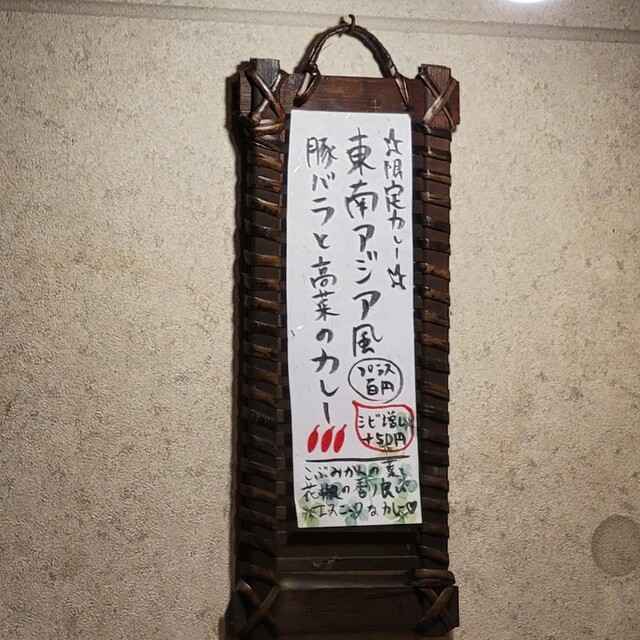 ☆限定カレー☆
東南アジア風
豚バラと高菜のカレー
プラス
百円
シビ増し
+50円
こぶみかんの葉と
花椒の香り良い
エスニックなカレー♡